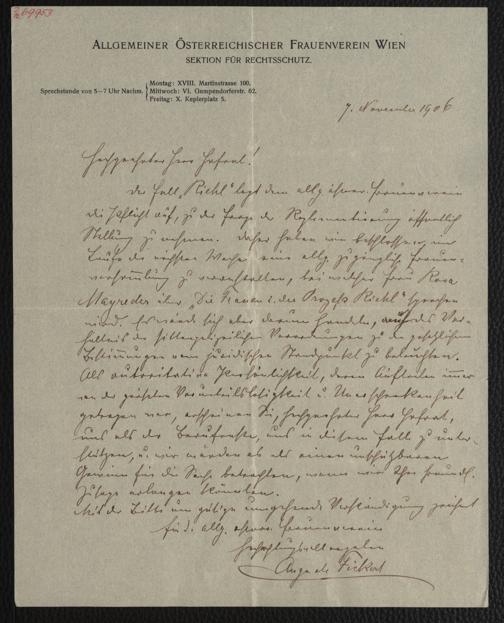 69953
ALLGEMEINER ÖSTERREICHISCHER FRAUENVEREIN WIEN
SEKTION FÜR RECHTSSCHUTZ.
Sprechstunde von 5—7 Uhr Nachm.
Montag: XVIII. Martinstrasse 100.
Mittwoch: VI. Gumpendorferstr. 62.
Freitag: X. Keplerplatz 5.
7. November 1906
Hochgeehrter Herr Hofrat!
Der Fall „Riehl" legt dem allg. österr. Frauenverein
die Pflicht auf, zu der Frage der Reglementierung öffentlich
Stellung zu nehmen. Daher haben wir beschlossen, im
Laufe der nächsten Woche eine allg. zugängliche Frauen-
versammlung zu veranstalten, bei welcher Frau Rosa
Mayreder über „Die Frauen i. den Prozeß Riehl" sprechen
wird. Es würde sich aber darum handeln, auch das Ver-
hältnis der sittenpolizeilichen Verordnungen zu den gesetzlichen
Bestimmungen vom juridischen Standpunkt zu beleuchten.
Als autoritative Persönlichkeit, deren Auftreten immer
von der größten Vorurteilslosigkeit u. Unerschrockenheit
getragen war, erscheinen Sie, hochgeehrter Herr Hofrat,
uns als der Berufenste, uns in diesem Fall zu unter-
stützen, u. wir würden es als einen unschätzbaren
Gewinn für die Sache betrachten, wenn wir Ihre freundl.
Zusage erlangen könnten.
Mit der Bitte um gütige umgehende Verständigung zeichnet
für d. allg. österr. Frauenverein
hochachtungsvoll ergeben
Auguste Fickert